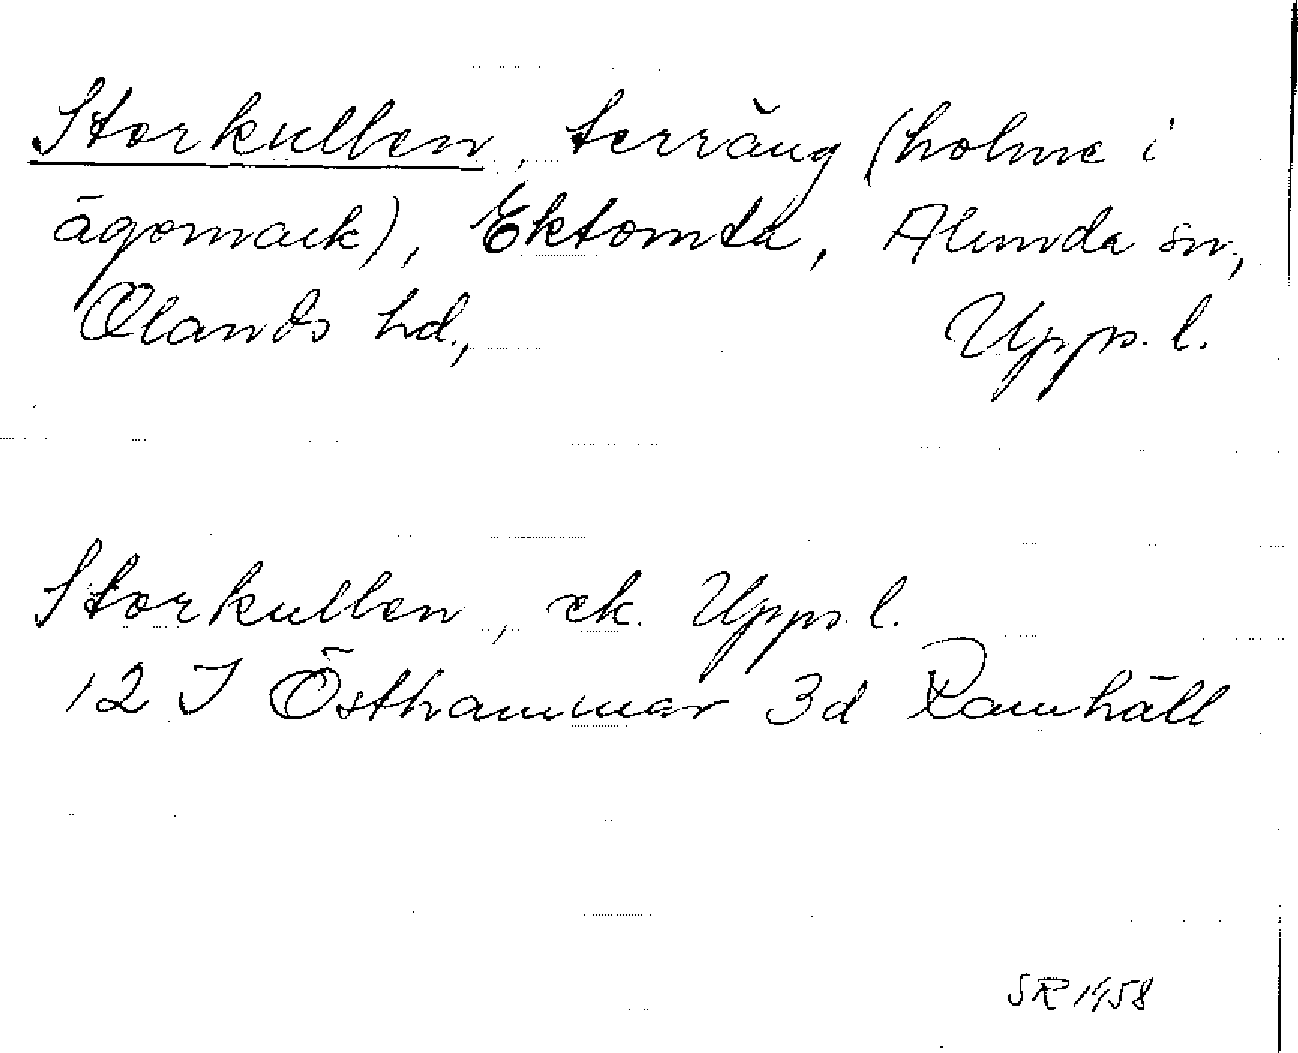 Storkullen, terräng (holme i
ägomark), Ektomta, Alunda sn,
Olands hd., Upps. l.
Storkullen, ek. Upps. l.
12 I Östhammar 3d Ramhäll
SR 1958